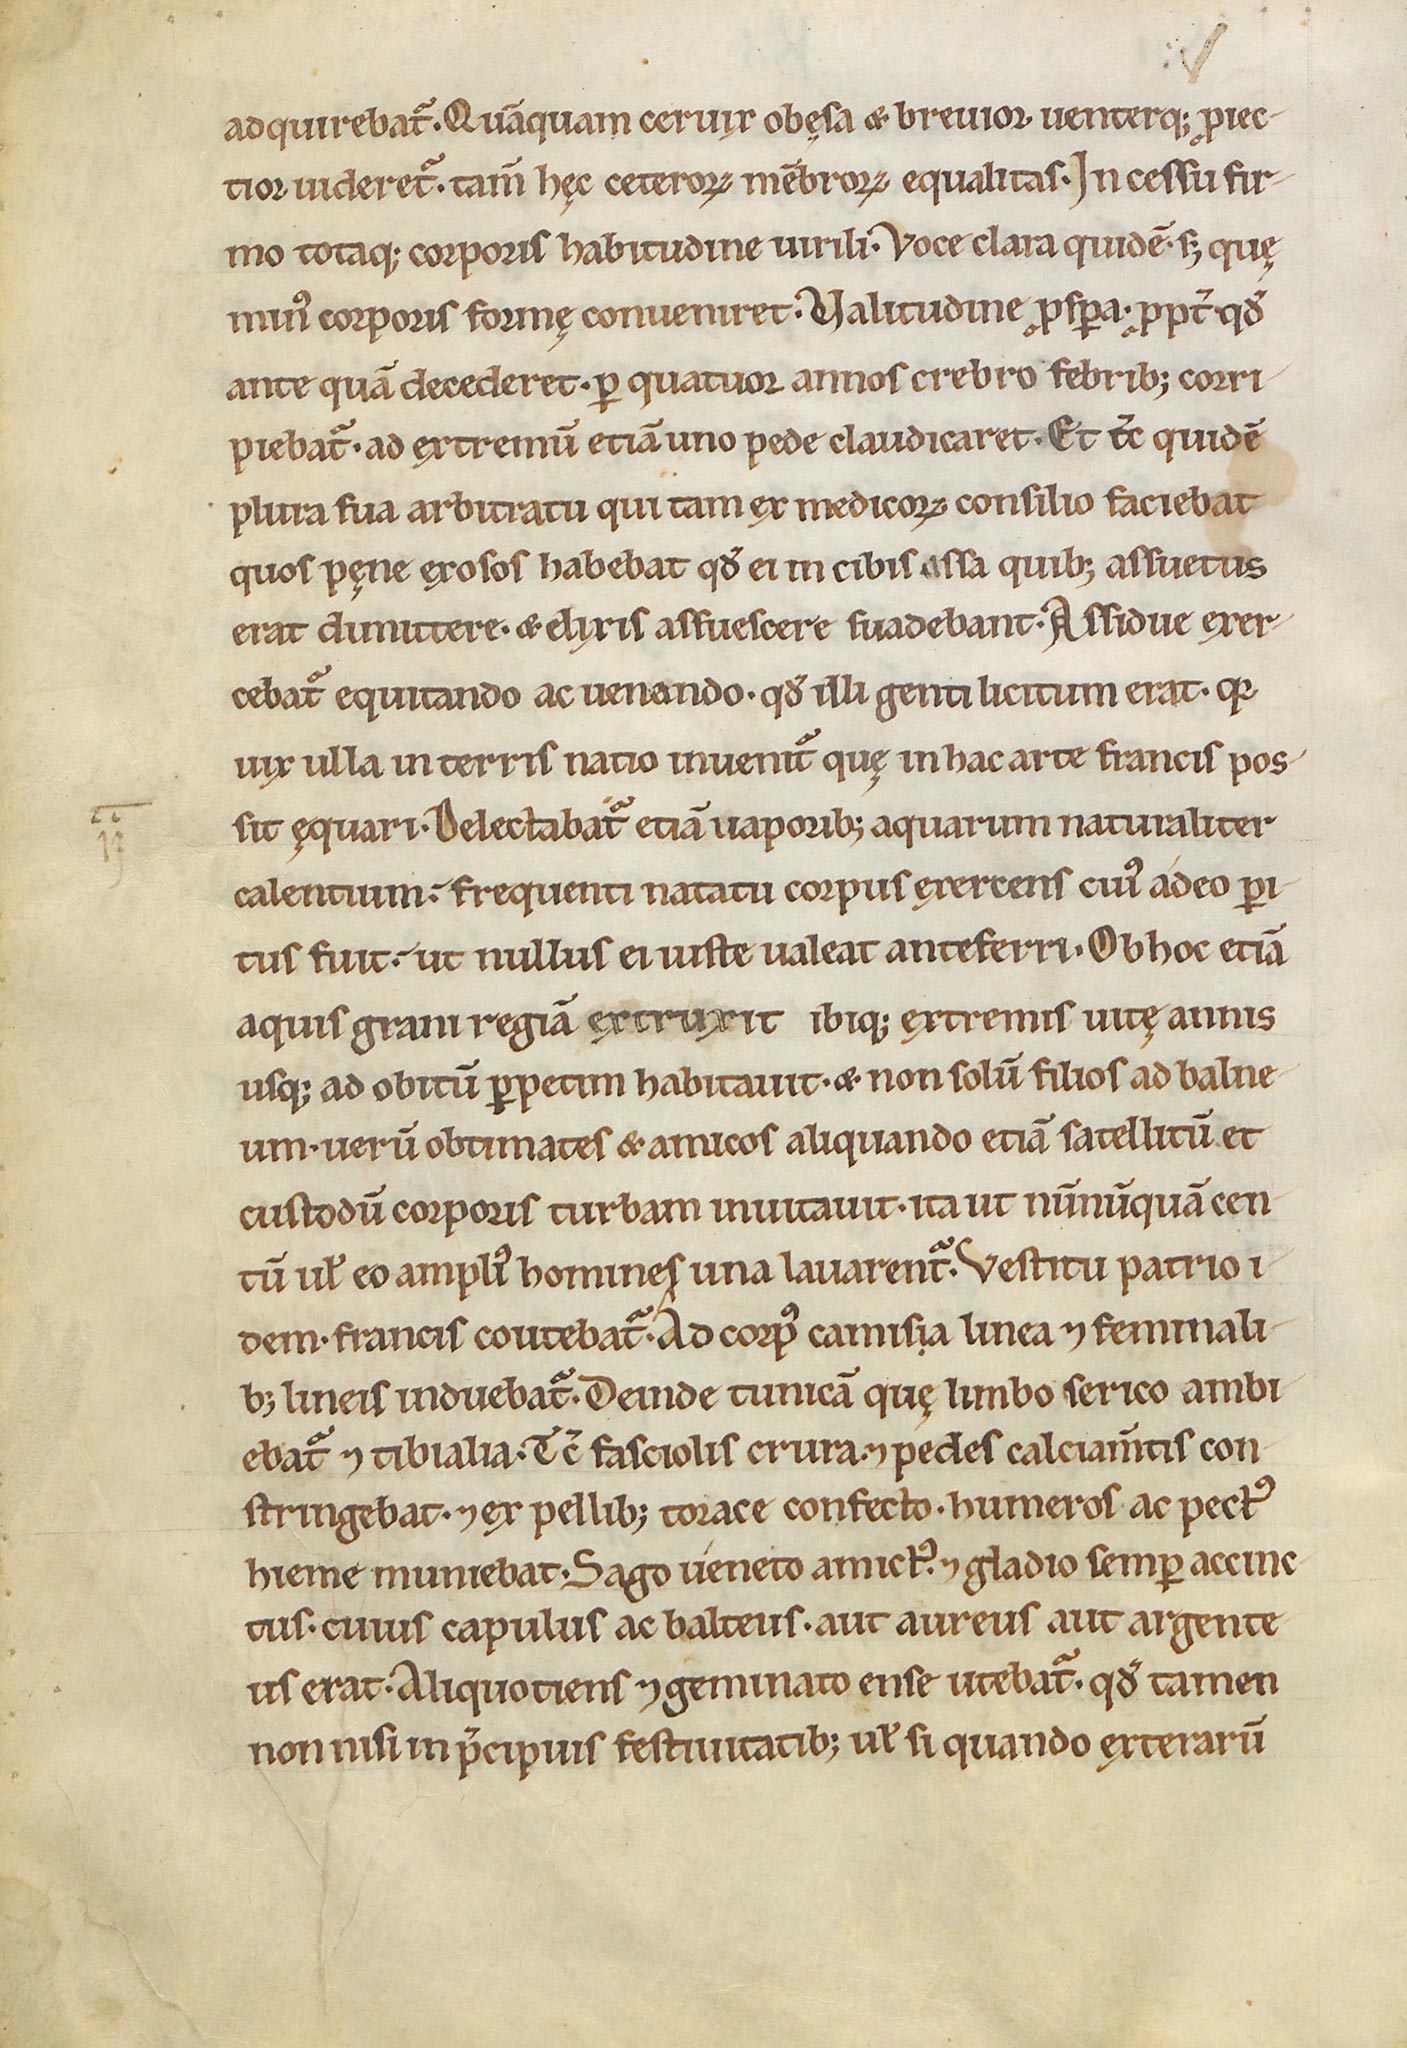 adquirebat᷑. Quāquam ceruix obęsa & breuior uenterq; ꝓiec-
tior uideret᷑. tam̄ hęc ceteroꝝ mēbroꝝ equalitas. In cessu fir-
mo totaq; corporis habitudine uirili. Voce clara quidē. s; quę
min᷒ corporis formę conueniret. Valitudine ꝓsꝑa. ꝓpt̄ qđ
ante quā decederet. ꝑ quatuor annos crebro febrib; corri-
piebat᷑. ad extremū etiā uno pede claudicaret. Et tc̄ quidē
plura sua arbitratu qui tam ex medicoꝝ consilio faciebat
quos pęne exosos habebat qđ ei in cibis assa quib; assuetus
erat dimittere. & elixis assuescere suadebant. Assidue exer-
cebat᷑ equitando ac uenando. qđ illi genti licitum erat. qꝛ
uix ulla in terris natio inuenit᷑ quę in hac arte francis pos-
sit ęquari. Delectabat᷑ etiā uaporib; aquarum naturaliter
calentium. frequenti natatu corpus exercens cui᷒ adeo ꝑi-
tus fuit. ut nullus ei iuste ualeat anteferri. Ob hoc etiā
aquis grani regiā extruxit ibiq; extremis uitę annis
usq; ad obitū ꝑpetim habitauit. & non solū filios ad balne-
um. uerū obtimates & amicos aliquando etiā satellitū et
custodū corporis turbam inuitauit. ita ut nūnūquā cen-
tū ul̄ eo ampli᷒ homines una lauarent᷑. Vestitu patrio i-
dem. francis coutebat᷑. Ad corp᷒ camisia linea ⁊ feminali-
b; lineis induebat᷑. Deinde tunicā quę limbo serico ambi-
ebat᷑ ⁊ tibialia. Tc̄ fasciolis crura. ⁊ pedes calciam̄tis con-
stringebat. ⁊ ex pellib; torace confecto. humeros ac pect᷒
hieme muniebat. Sago ueneto amict᷒. ⁊ gladio semꝑ accinc-
tus. cuius capulus ac balteus. aut aureus aut argente-
us erat. Aliquotiens ⁊ geminato ense utebat᷑. qđ tamen
non nisi in p̄cipuis festiuitatib; ul̄ si quando exterarū